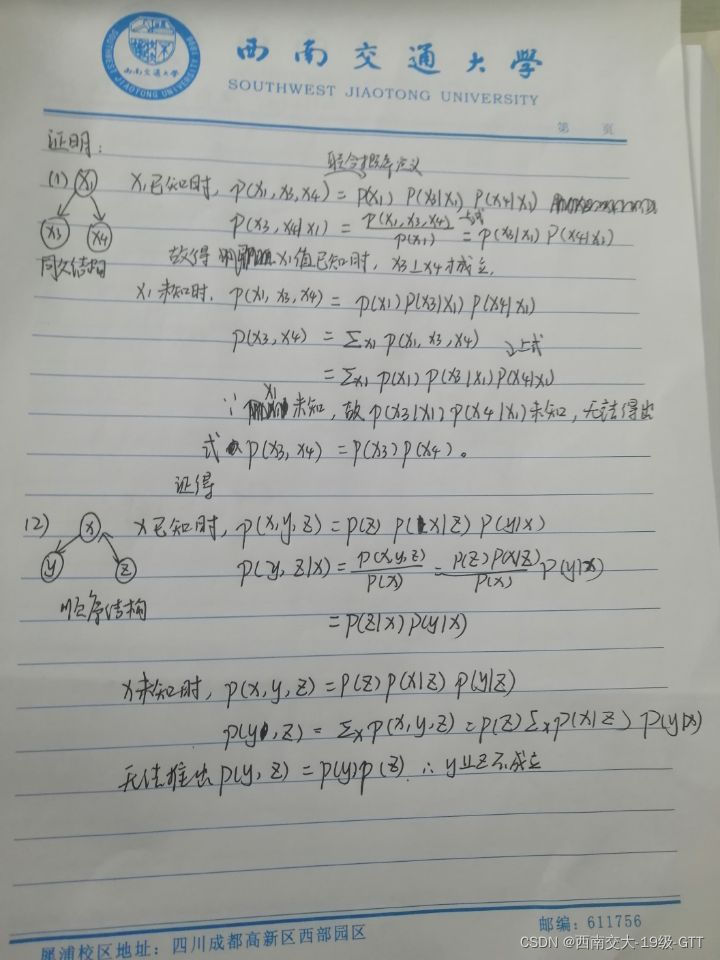 西南交通大学
SOUTHWEST JIAOTONG UNIVERSITY
第 页
证明:
联合概率定义
(1) X1 X1已知时, P(X1, X3, X4) = P(X1) P(X3|X1) P(X4|X1)
X3 X4 P(X3, X4|X1) = P(X1, X3, X4)/P(X1) 上式= P(X3|X1) P(X4|X1)
同父结构 故得 X1值已知时, X3⊥X4才成立.
X1未知时, P(X1, X3, X4) = P(X1) P(X3|X1) P(X4|X1)
P(X3, X4) = ΣX1 P(X1, X3, X4) 上式
= ΣX1 P(X1) P(X3|X1) P(X4|X1)
∵ X1未知, 故P(X3|X1) P(X4|X1)未知, 无法得出
式 P(X3, X4) = P(X3) P(X4)。
证得
(2) X X已知时, P(X, Y, Z) = P(Z) P(X|Z) P(Y|X)
Y Z P(Y, Z|X) = P(X,Y,Z)/P(X) = P(Z)P(X|Z)/P(X) P(Y|X)
顺序结构 = P(Z|X) P(Y|X)
X未知时, P(X, Y, Z) = P(Z) P(X|Z) P(Y|Z)
P(Y, Z) = ΣX P(X, Y, Z) = P(Z) ΣX P(X|Z) P(Y|X)
无法推出P(Y, Z) = P(Y)P(Z) ∴ Y⊥Z不成立
邮编: 611756
犀浦校区地址: 四川成都高新区西部园区
CSDN @西南交大-19级-GTT